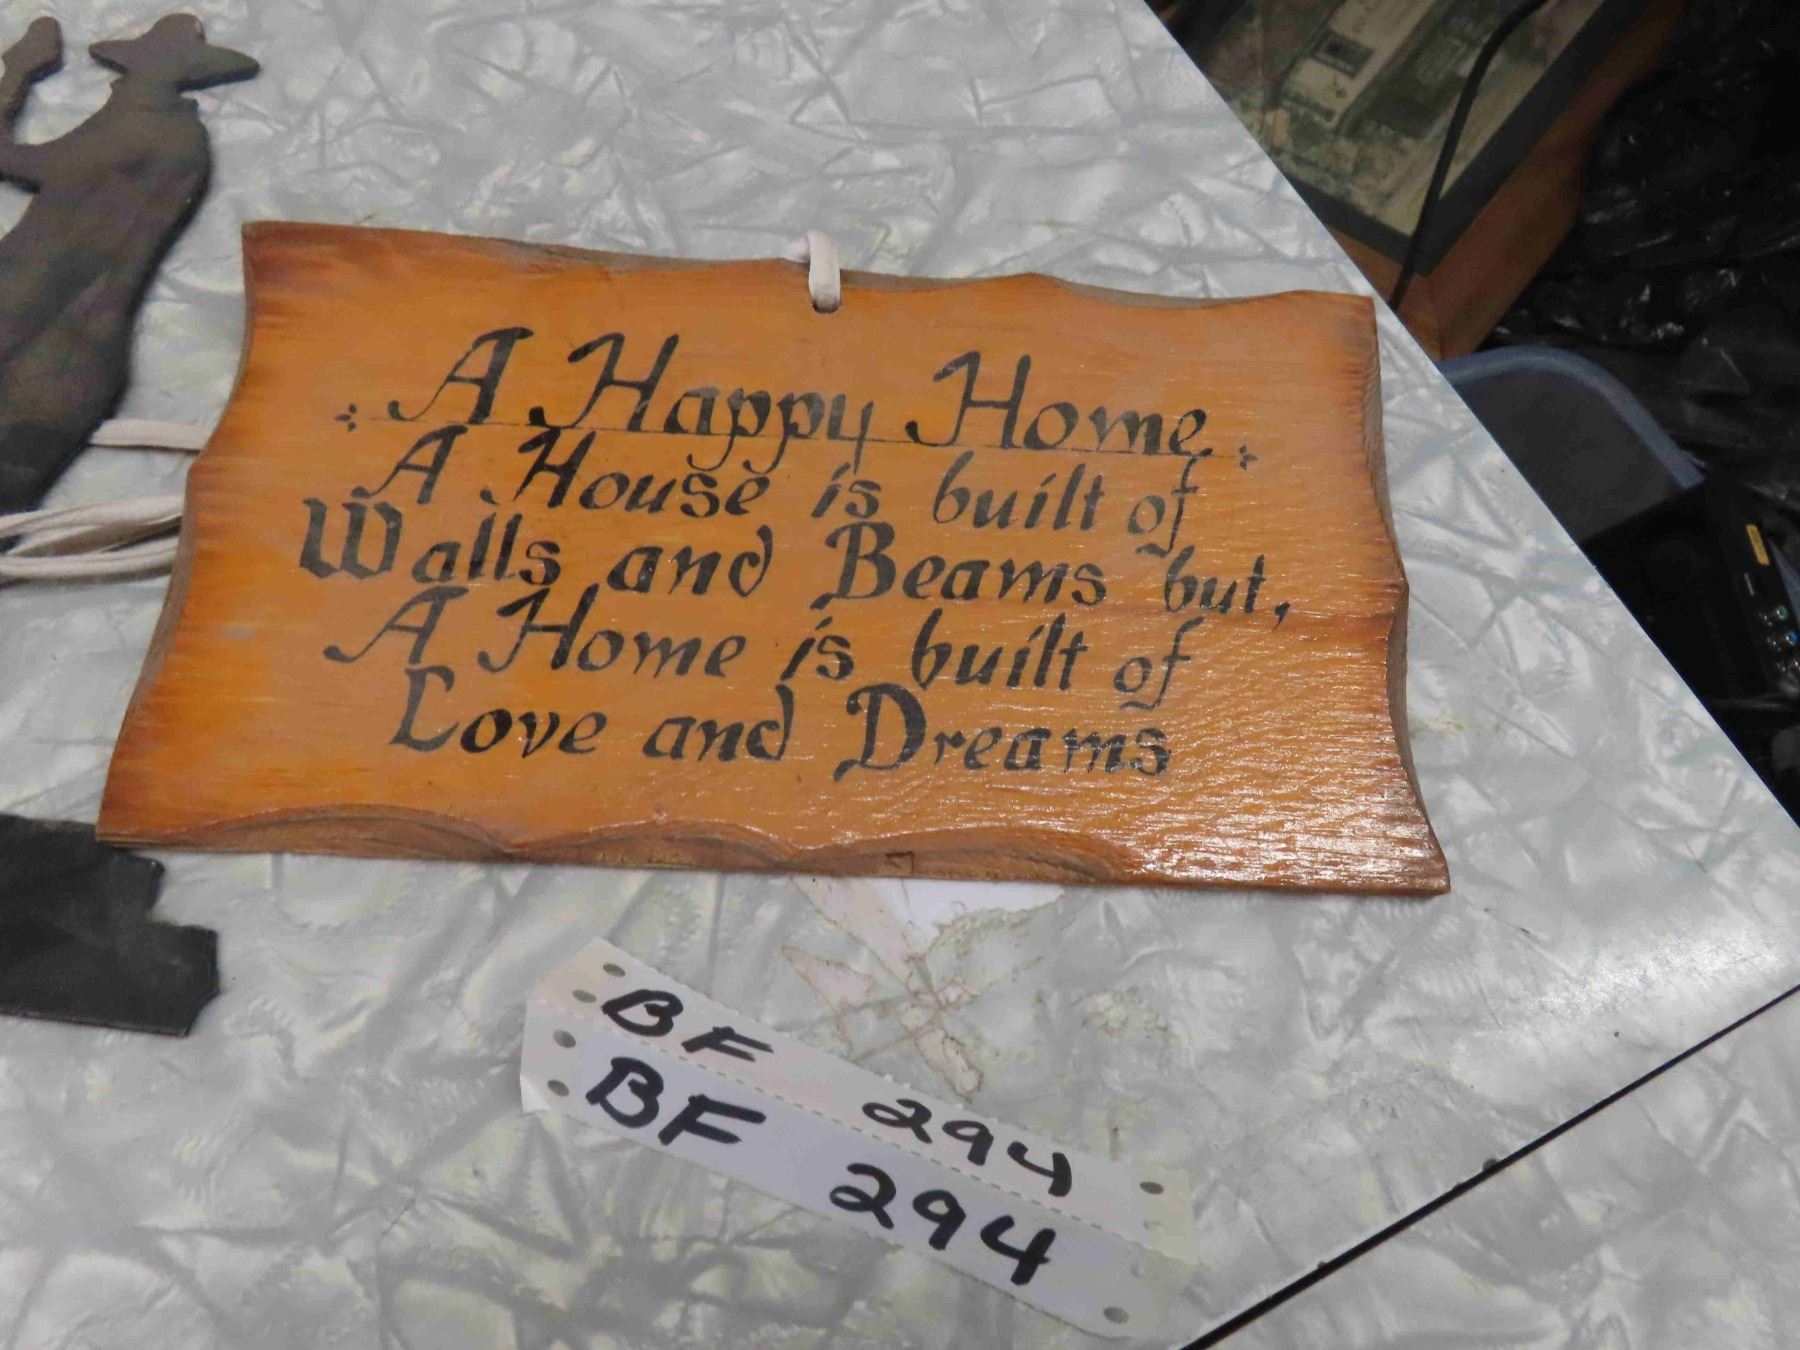 A Happy Home
A House is built of
Walls and Beams but,
A Home is built of
Love and Dreams
BF 294
BF 294